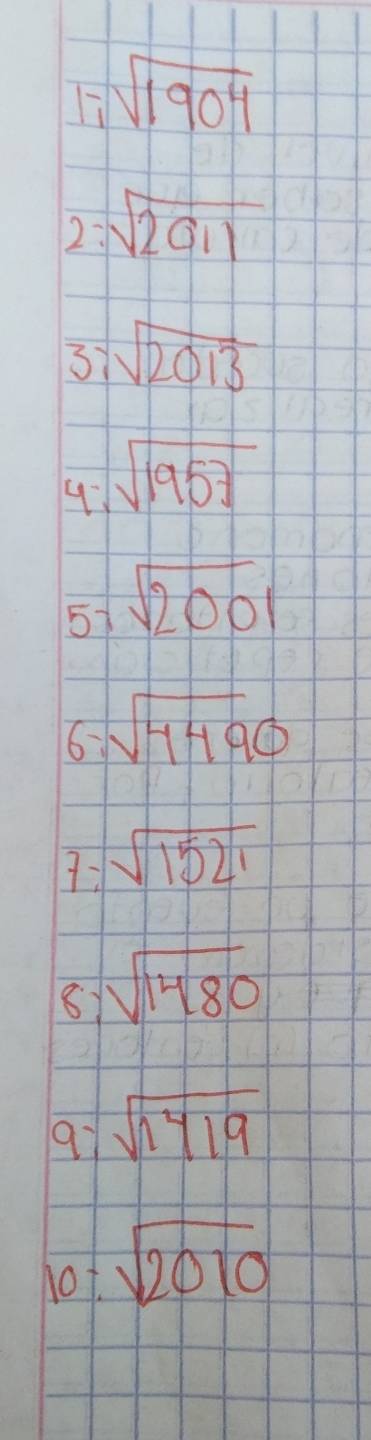 1-. √1904
2-. √2011
3-. √2013
4-. √1957
5-. √2001
6-. √4490
7-. √1521
8-. √1480
9-. √1419
10-. √2010